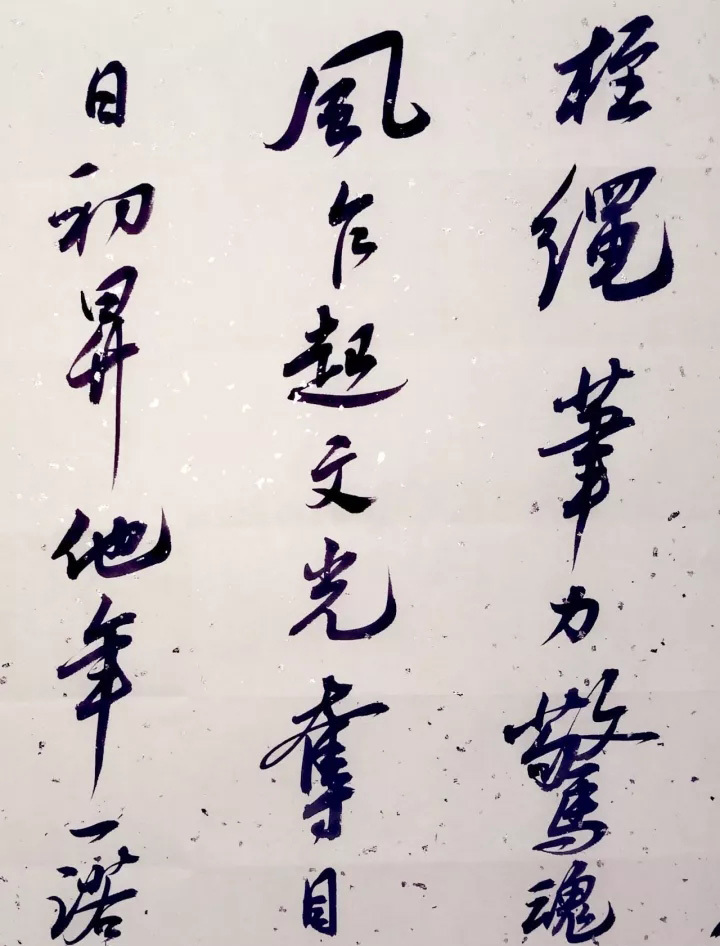 繩筆力驚魂
風乍起文光奪目
日初昇他年一諾